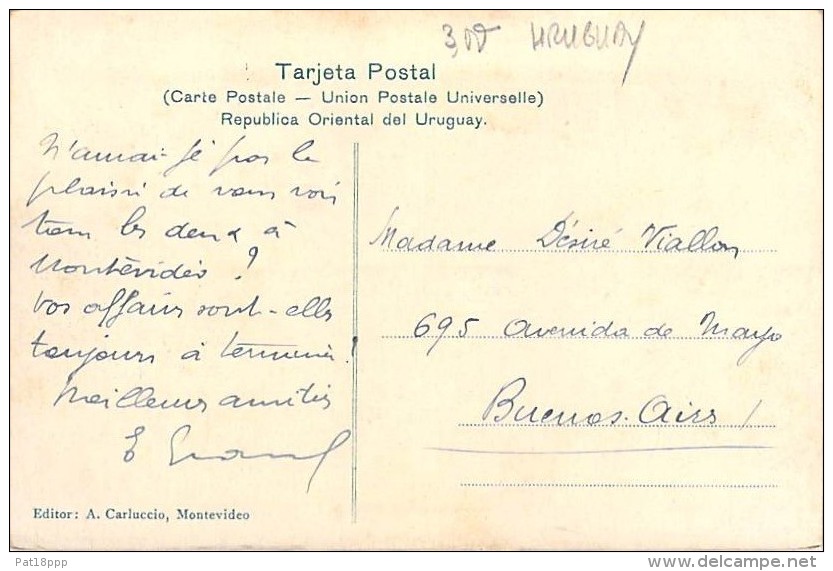 3,00 URUGUAY
Tarjeta Postal
(Carte Postale — Union Postale Universelle)
Republica Oriental del Uruguay.
N'aurai-je pas le
plaisir de vous voir
tous les deux à
Montévidéo ?
Vos affaires sont-elles
toujours à terminer !
Meilleures amitiés
E
Madame Désiré Viallon
695 Avenida de Mayo
Buenos-Aires /
Editor: A. Carluccio, Montevideo
Pat18ppp
www.delcampe.net